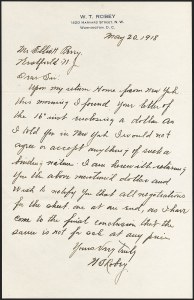 W. T. ROBEY
1320 HARVARD STREET, N.W.
WASHINGTON, D.C.
May 20, 1918
Mr Elliott Perry
Westfield N J
Dear Sir:
Upon my return home from New York
this evening I found your letter of
the 16th inst enclosing a dollar. As
I told you in New York I would not
agree or accept anything of such a
binding nature. I am herewith returning
you the above mentioned dollar and
wish to notify you that all negotiations
for the sheet are at an end, as I have
come to the final conclusion that the
same is not for sale at any price.
Yours Very Truly
W T Robey